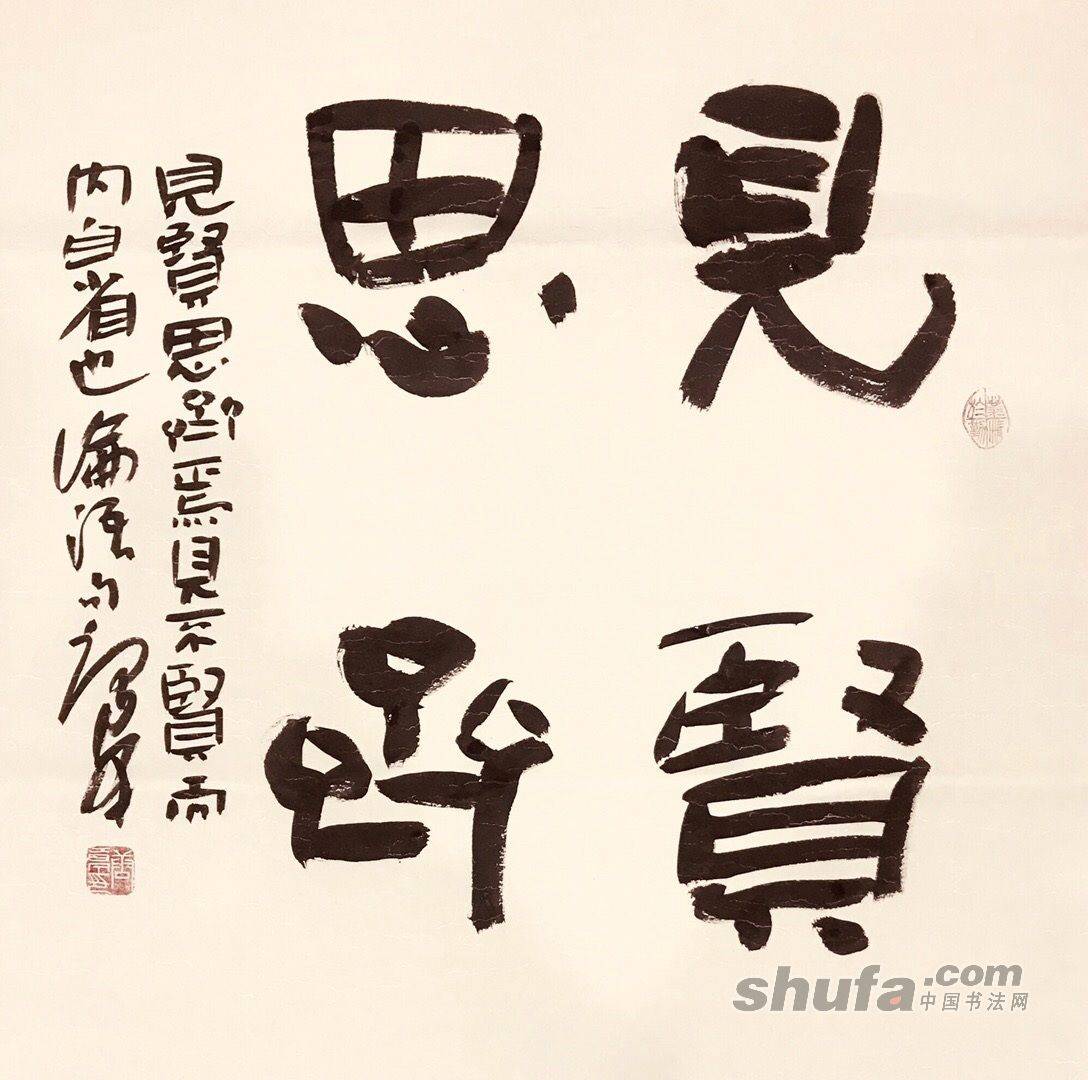 見賢
思齊
見賢思齊焉見不賢而
内自省也論語句
shufa.com
中国书法网